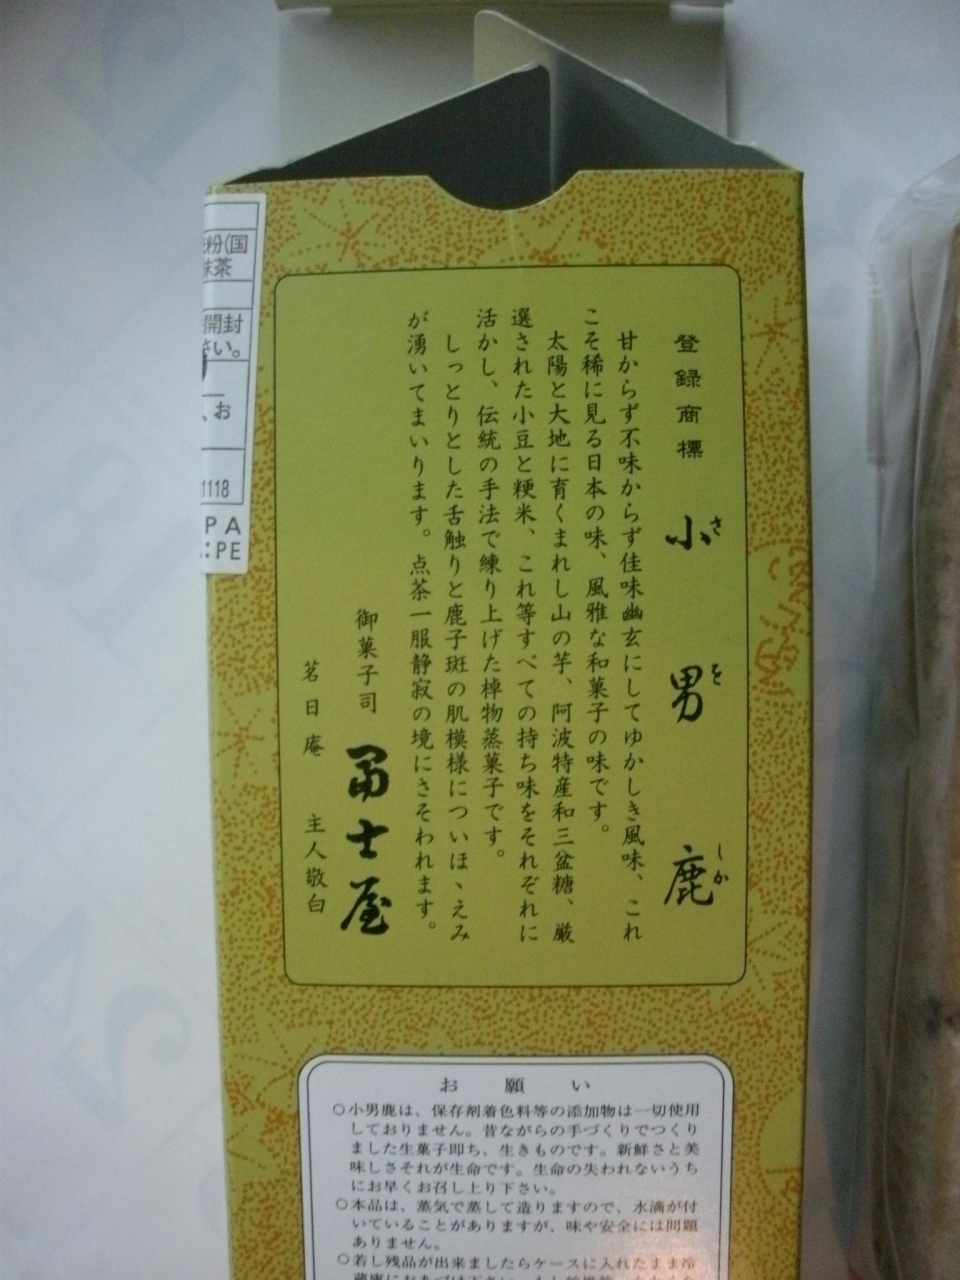 登録商標 小男鹿
さをしか
甘からず不味からず佳味幽玄にしてゆかしき風味、これ
こそ稀に見る日本の味、風雅な和菓子の味です。
太陽と大地に育くまれし山の芋、阿波特産和三盆糖、厳
選された小豆と粳米、これ等すべての持ち味をそれぞれに
活かし、伝統の手法で練り上げた棹物蒸菓子です。
しっとりとした舌触りと鹿子斑の肌模様についほゝえみ
が湧いてまいります。点茶一服静寂の境にさそわれます。
御菓子司 冨士屋
茗日庵 主人敬白
粉(国
抹茶
開封
さい。
、お
1118
PA
:PE
お願い
○小男鹿は、保存剤着色料等の添加物は一切使用
しておりません。昔ながらの手づくりでつくり
ました生菓子即ち、生きものです。新鮮さと美
味しさそれが生命です。生命の失われないうち
にお早くお召し上り下さい。
○本品は、蒸気で蒸して造りますので、水滴が付
いていることがありますが、味や安全には問題
ありません。
○若し残品が出来ましたらケースに入れたまま冷